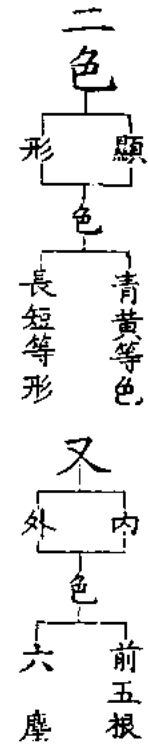 二色
顯
形
色
青黃等色
長短等形
又
內
外
色
前五根
六塵